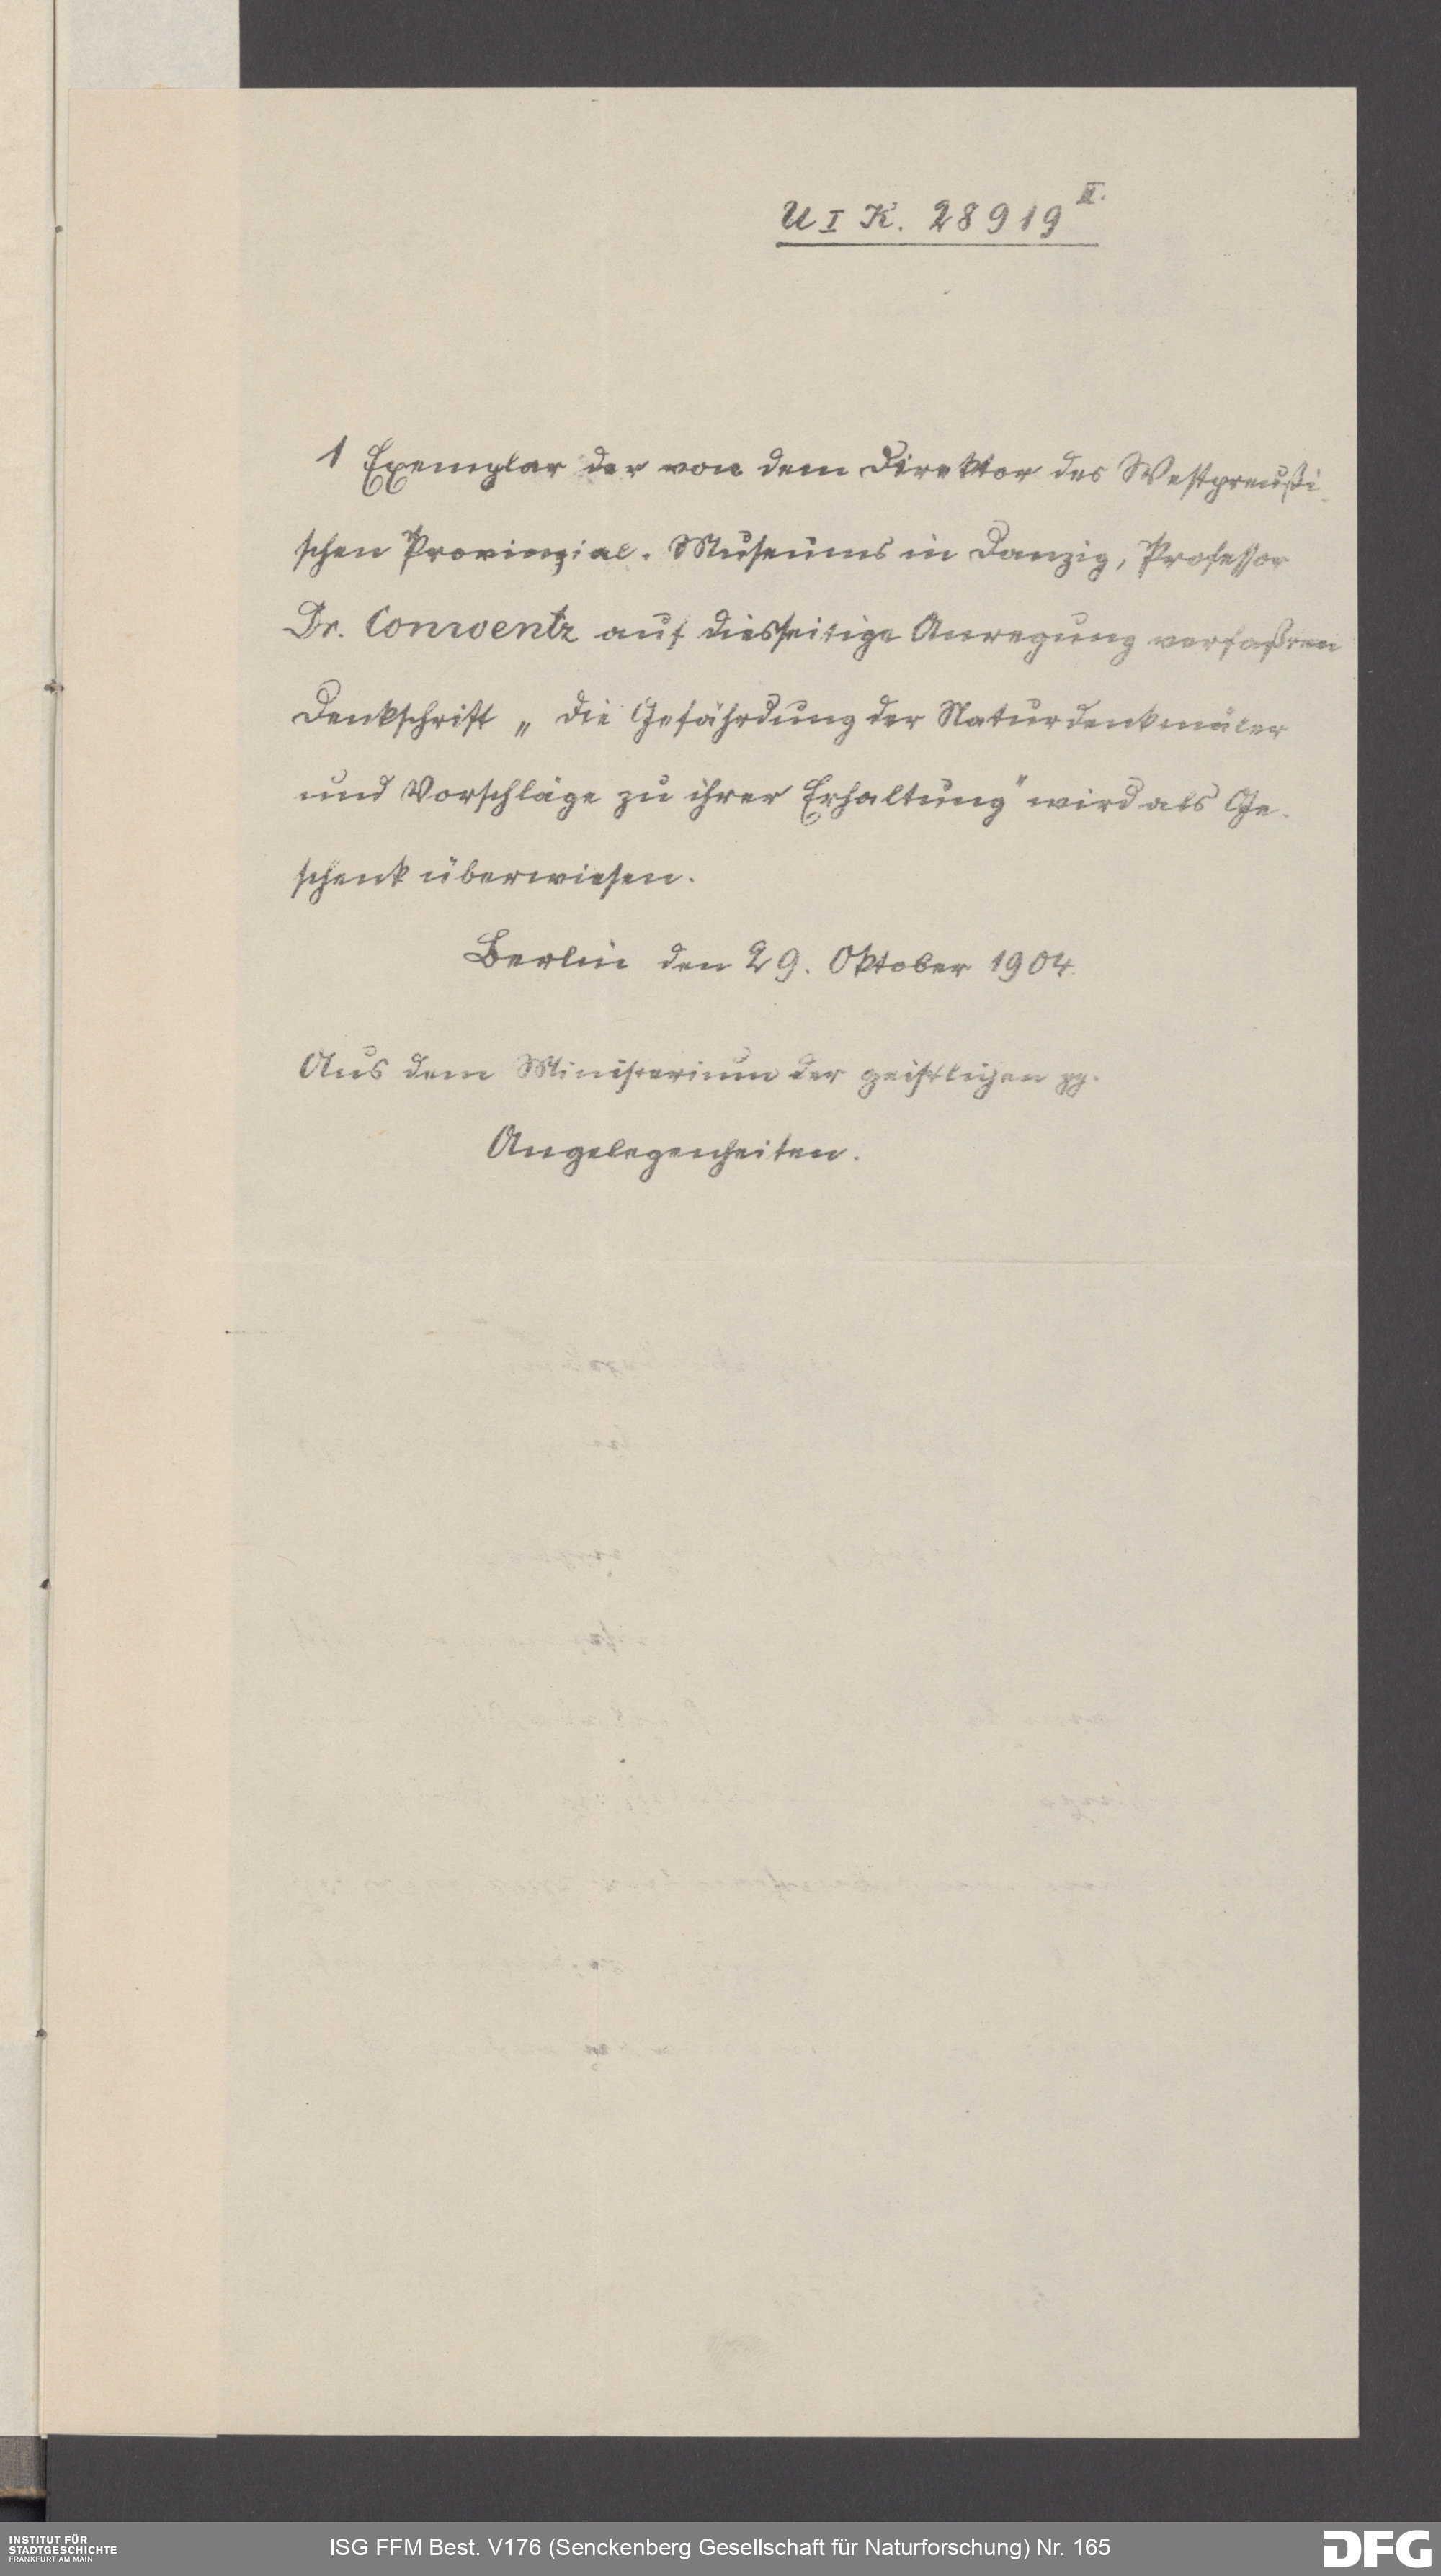 U I K. 28919 II.
1 Exemplar der von dem Direktor des Westpreußi-
schen Provinzial-Museums in Danzig, Professor
Dr. Conwentz auf diesseitige Anregung verfaßten
Denkschrift „Die Gefährdung der Naturdenkmäler
und Vorschläge zu ihrer Erhaltung" wird als Ge-
schenk überwiesen.
Berlin den 29. Oktober 1904
Aus dem Ministerium der geistlichen pp.
Angelegenheiten.
INSTITUT FÜR
STADTGESCHICHTE
FRANKFURT AM MAIN
ISG FFM Best. V176 (Senckenberg Gesellschaft für Naturforschung) Nr. 165
DFG